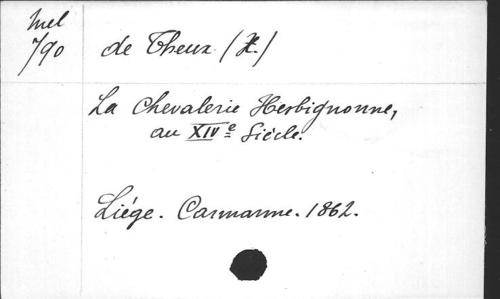 Mel
790
de Theux (X.)
La Chevalerie Herbignonne,
au XIVe Siècle.
Liége. Carmanne. 1862.